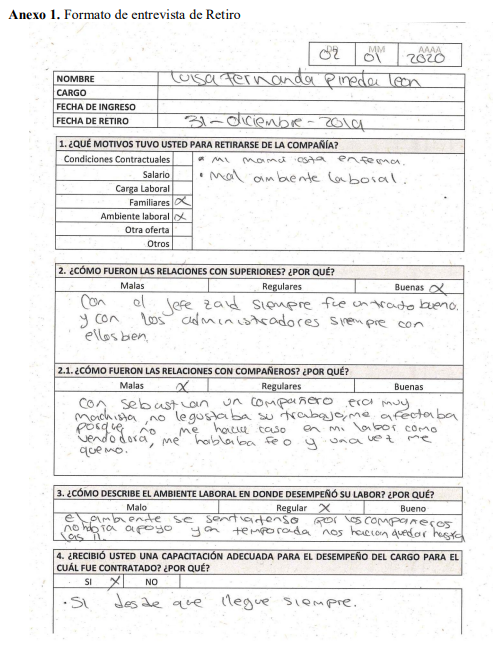 Anexo 1. Formato de entrevista de Retiro
DD MM AAAA
02 01 2020
NOMBRE Luisa Fernanda Pineda Leon
CARGO
FECHA DE INGRESO
FECHA DE RETIRO 31-diciembre-2019
1. ¿QUÉ MOTIVOS TUVO USTED PARA RETIRARSE DE LA COMPAÑÍA?
Condiciones Contractuales • Mi mamá esta enferma.
Salario • Mal ambiente laboral.
Carga Laboral
Familiares X
Ambiente laboral X
Otra oferta
Otros
2. ¿CÓMO FUERON LAS RELACIONES CON SUPERIORES? ¿POR QUÉ?
Malas Regulares Buenas X
Con el Jefe zaid siempre fue un trato bueno.
y con los administradores siempre con
ellos bien.
2.1. ¿CÓMO FUERON LAS RELACIONES CON COMPAÑEROS? ¿POR QUÉ?
Malas X Regulares Buenas
Con Sebastian un compañero era muy
machista, no le gustaba su trabajo, me afectaba
porque no me hacia caso en mi labor como
vendedora, me hablaba feo y una vez me
quemo.
3. ¿CÓMO DESCRIBE EL AMBIENTE LABORAL EN DONDE DESEMPEÑÓ SU LABOR? ¿POR QUÉ?
Malo Regular X Bueno
el ambiente se sentia tenso por los compañeros
no habia apoyo y en temporada nos hacian quedar hasta
las 11.
4. ¿RECIBIÓ USTED UNA CAPACITACIÓN ADECUADA PARA EL DESEMPEÑO DEL CARGO PARA EL
CUÁL FUE CONTRATADO? ¿POR QUÉ?
SI X NO
• Si desde que llegue siempre.